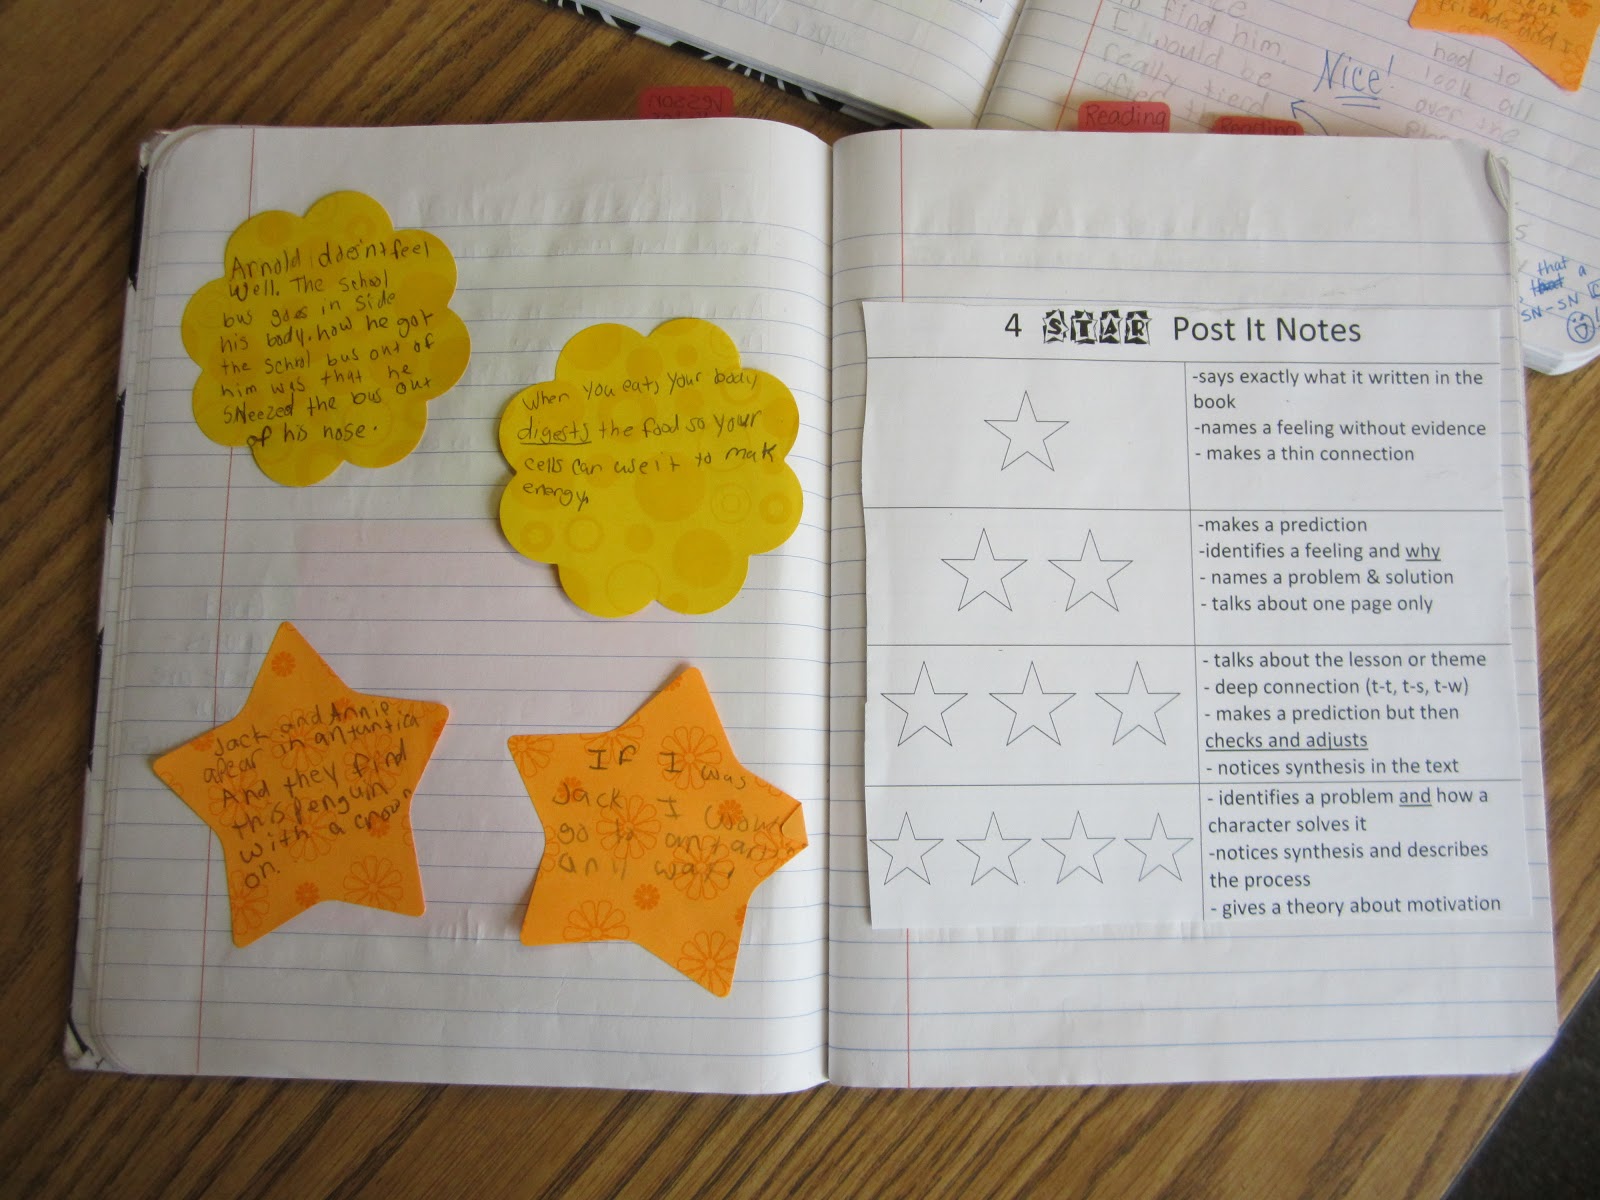 Arnold doesn't feel
well. The School
bus goes in side
his body. how he got
the School bus out of
him was that he
SNeezed the bus out
of his nose.
When you eat, your body
digests the food so your
cells can use it to mak
energy.
Jack and Annie
apear in antartica
And they find
this Penguin
with a crown
on.
If I was
Jack I
go to
4 STAR Post It Notes
-says exactly what it written in the
book
-names a feeling without evidence
- makes a thin connection
-makes a prediction
-identifies a feeling and why
- names a problem & solution
- talks about one page only
- talks about the lesson or theme
- deep connection (t-t, t-s, t-w)
- makes a prediction but then
checks and adjusts
- notices synthesis in the text
- identifies a problem and how a
character solves it
-notices synthesis and describes
the process
- gives a theory about motivation
Reading
Reading
to find him.
I would be
really tierd
after
Nice!
had to
look all
over the
that a
SN-SN